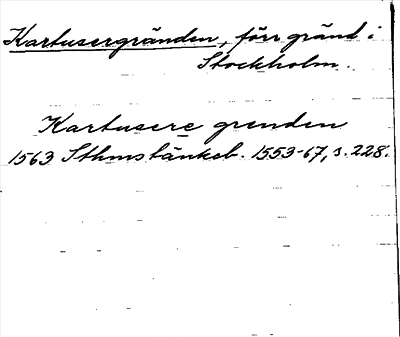 Kartusergränden, förr gränd i
Stockholm.
Kartusere grenden
1563 Sthms tänkeb. 1553-67, s. 228.